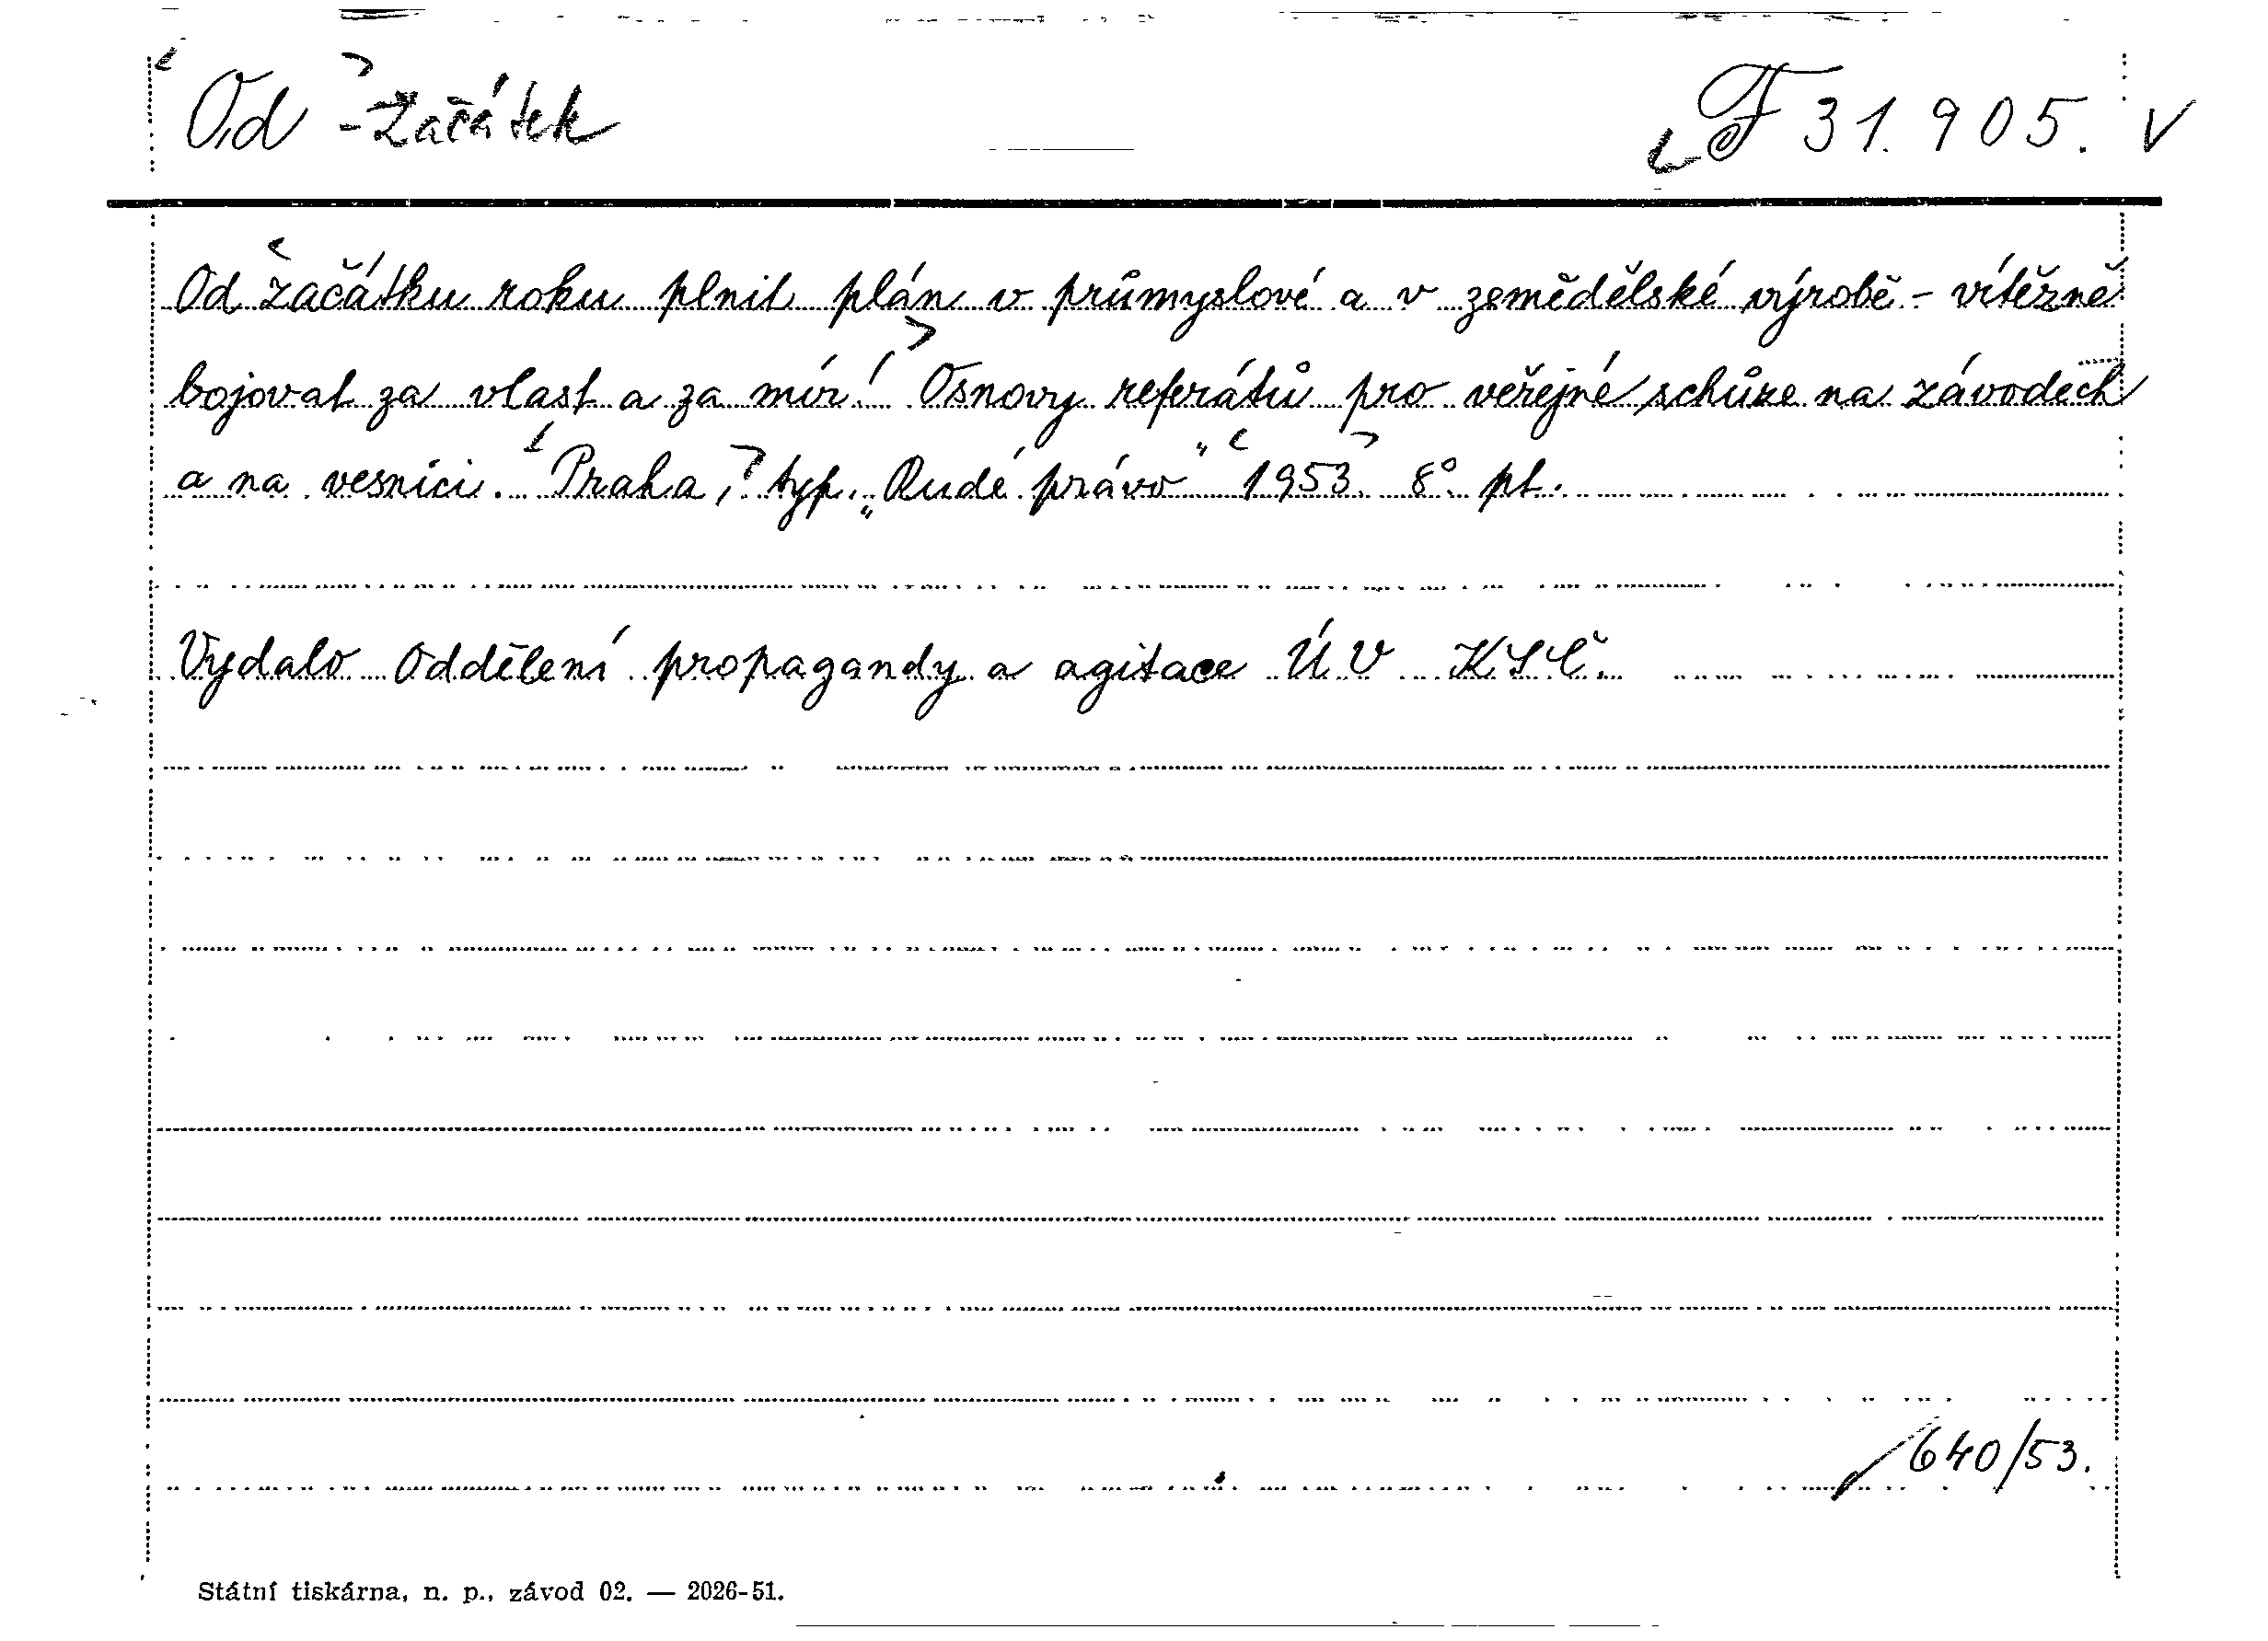 Od -Začátek F 31.905. V
Od začátku roku plnit plán v průmyslové a v zemědělské výrobě - vítězně
bojovat za vlast a za mír! Osnovy referátů pro veřejné schůze na závodech
a na vesnici. Praha, typ. „Rudé právo" 1953 8° pl.
Vydalo Oddělení propagandy a agitace ÚV KSČ.
640/53.
Státní tiskárna, n. p., závod 02. — 2026-51.